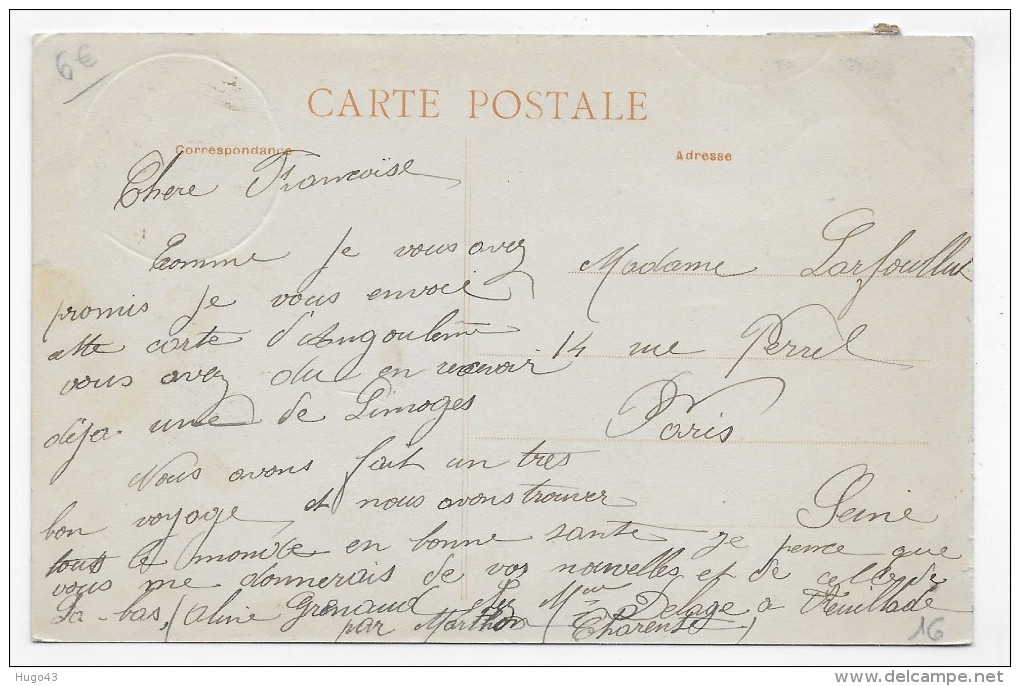 6€
CARTE POSTALE
Correspondance
Adresse
Chere Françoise
Comme je vous avez
promis je vous envoie
cette carte d'Angoulême
vous avez du en recevoir
déja une de Limoges
Nous avons fait un tres
bon voyage et nous avons trouver
tout le monde en bonne sante je pence que
vous me donnerais de vos nouvelles et de celle de
La-bas, (Aline Grenaud chez Mme Delage a Feuillade
par Marthon (Charente)
Madame
14 rue Perrel
Paris
Seine
16
Hugo43
delcampe.net